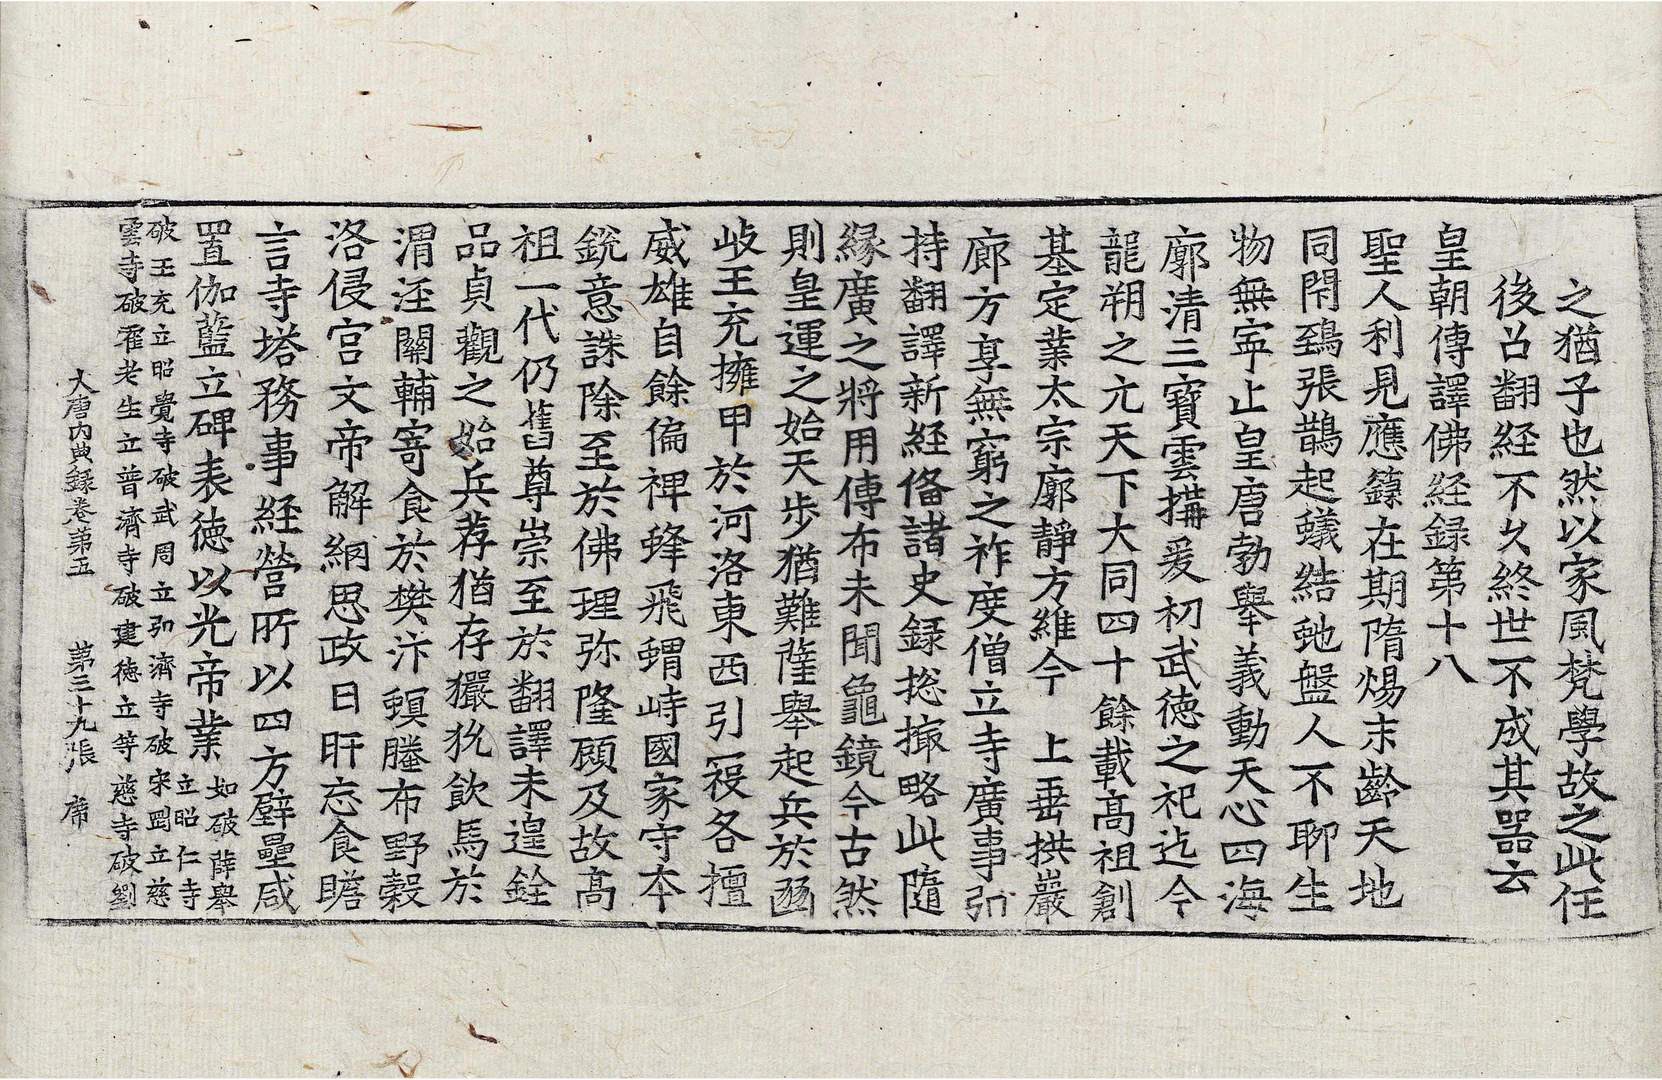 之猶子也然以家風梵學故之此任
後召翻経不久終世不成其器云
皇朝傳譯佛経録第十八
聖人利見應籙在期隋煬末齡天地
同閇鵄張鵲起蟻結虵盤人不聊生
物無寧止皇唐勃舉義動天心四海
廓清三寶雲搆爰初武德之祀迄今
龍朔之元天下大同四十餘載高祖創
基定業太宗廓靜方維今　上垂拱巖
廊方享無窮之祚度僧立寺廣事弘
持翻譯新経俻諸史録捴撮略此隨
緣廣之將用傳布未聞龜鏡今古然
則皇運之始天步猶難薩舉起兵於豳
岐王充擁甲於河洛東西引褫各擅
威雄自餘偏裨蜂飛蝟峙國家守夲
銳意誅除至於佛理弥隆顧及故高
祖一代仍舊尊崇至於翻譯未遑銓
品貞觀之始兵荐猶存玁狁飲馬於
渭涇關輔寄食於樊汴螟螣布野穀
洛侵宮文帝解網思政日旰忘食瞻
言寺塔務事経營所以四方壁壘咸
置伽藍立碑表德以光帝業如破薛舉立昭仁寺
破王充立昭覺寺破武周立弘濟寺破宋罡立慈
雲寺破霍老生立普濟寺破建德立等慈寺破劉
大唐内典録卷第五　第三十九張　席